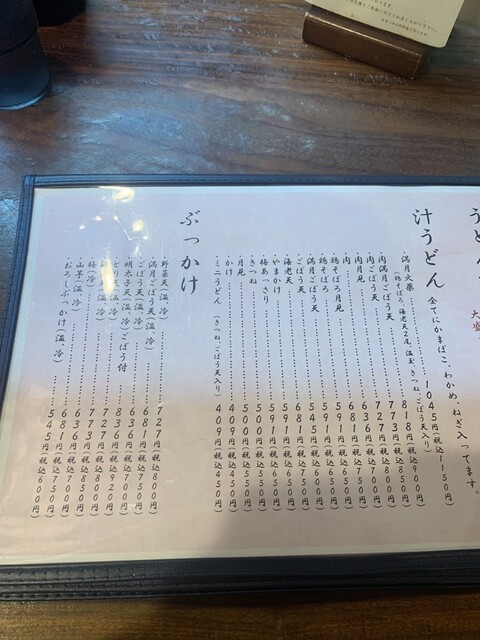 汁うどん 全てにかまぼこ、わかめ、ねぎ入ってます。
・満月 1045円(税込1150円)
(鶏そぼろ、海老天2尾、温玉、きつね、ごぼう天入り)
・肉満月ごぼう天 818円(税込900円)
・肉ごぼう天 773円(税込850円)
・肉月見 727円(税込800円)
・肉 636円(税込700円)
・鶏そぼろ月見 636円(税込700円)
・鶏そぼろ 591円(税込650円)
・満月ごぼう天 591円(税込650円)
・ごぼう天 545円(税込600円)
・海老天 681円(税込750円)
・やまかけ 591円(税込650円)
・梅あっさり 500円(税込550円)
・きつね 500円(税込550円)
・月見 500円(税込550円)
・かけ 409円(税込450円)
・ミニうどん (きつね、ごぼう天入り) 409円(税込450円)
ぶっかけ
・野菜天(温冷) 727円(税込800円)
・満月ごぼう天(温冷) 681円(税込750円)
・ごぼう天(温冷) 636円(税込700円)
・明太子天(温冷)ごぼう付 836円(税込920円)
・とり天(温冷) 727円(税込800円)
(温冷) 773円(税込850円)
・梅(冷) 636円(税込700円)
・山芋(温冷) 681円(税込750円)
・おろしぶっかけ(温冷) 545円(税込600円)